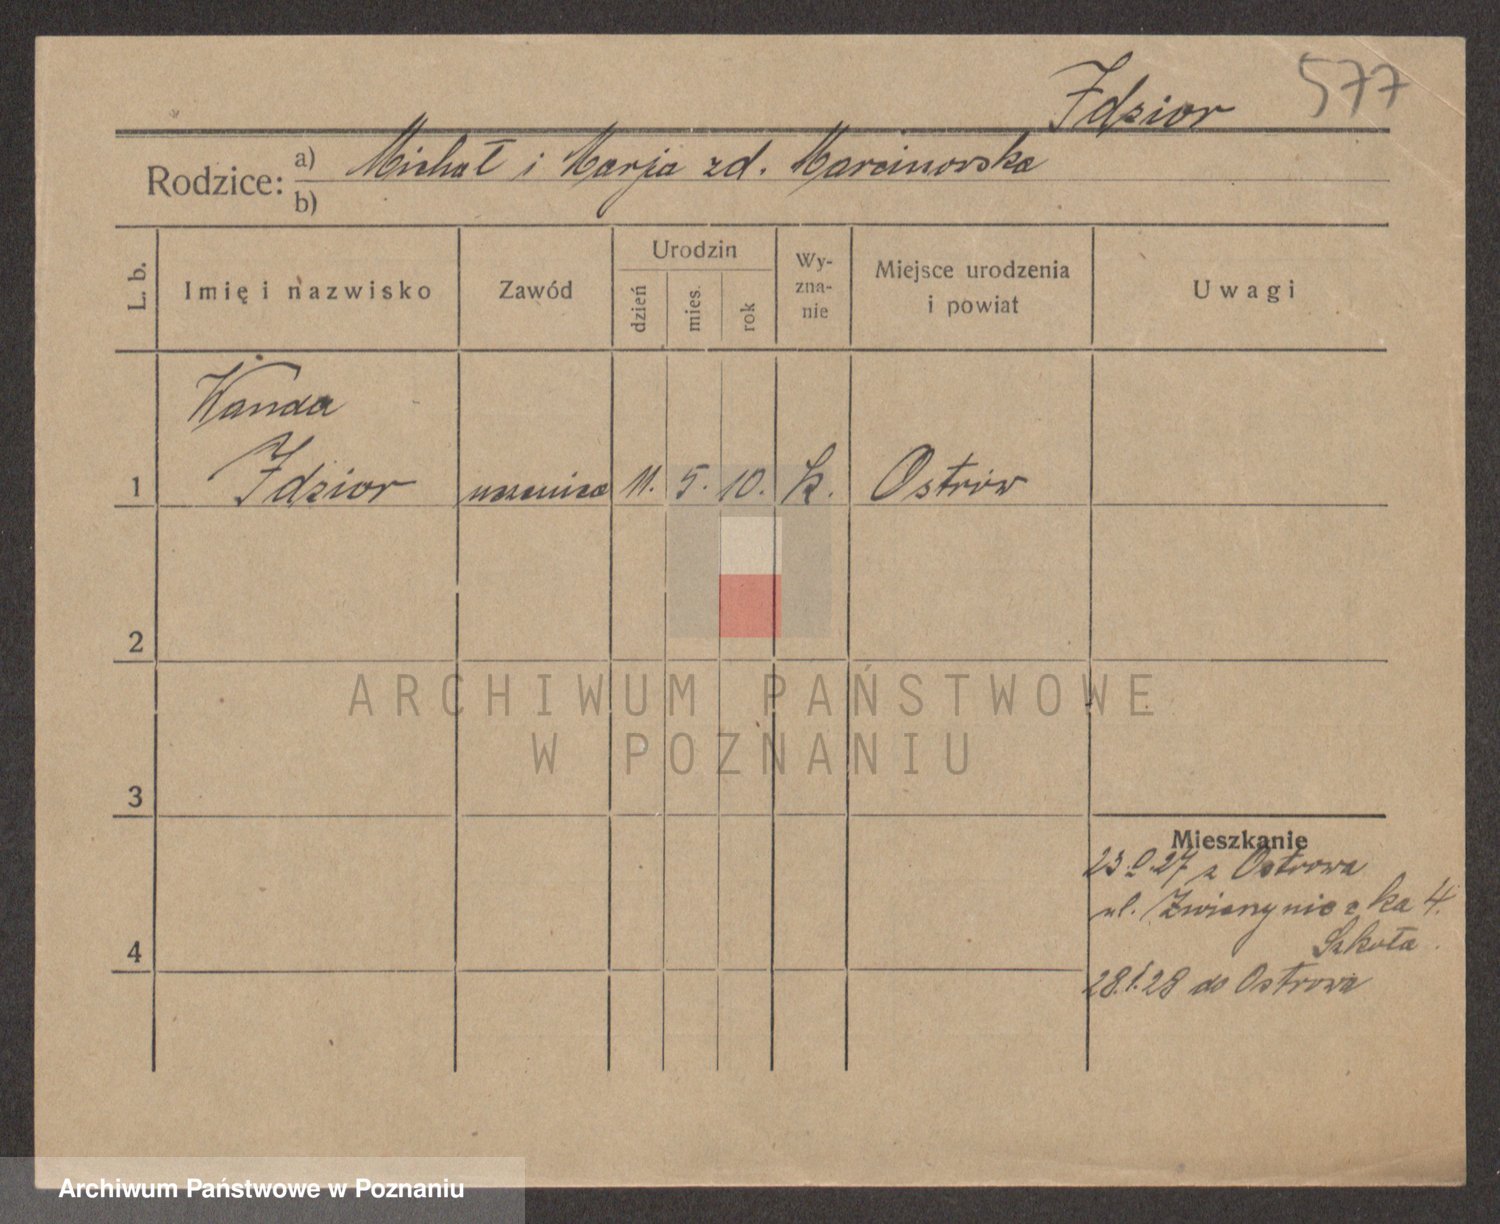 Idzior 577
Rodzice: a) Michał i Marja zd. Marcinowska
b)
L. b. Imię i nazwisko Zawód Urodzin dzień mies. rok Wy-zna-nie Miejsce urodzenia i powiat Uwagi
Wanda
1 Idzior uczenica 11. 5. 10. k. Ostrów
2
ARCHIWUM PAŃSTWOWE
W POZNANIU
3
Mieszkanie
27 z Ostrowa
ul. Zwierzyniecka 4.
Szkoła.
4
28.1.28 do Ostrowa
Archiwum Państwowe w Poznaniu